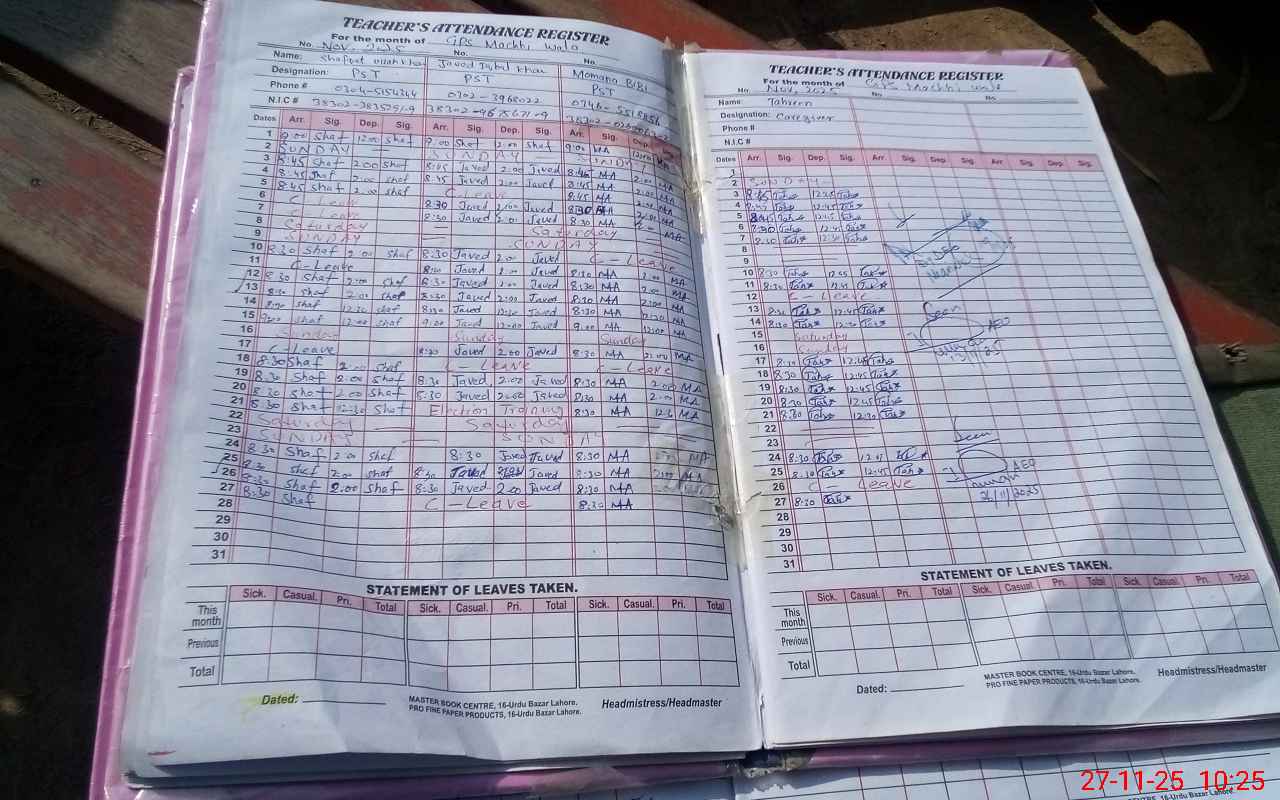 TEACHER'S ATTENDANCE REGISTER
For the month of GPS Machhi Wala
No. Nov. 2025 No. No.
Name: Shafqat Ullah Khan Javed Iqbal Khan Momano BiBi
Designation: PST PST PST
Phone # 0304-5154344 0302-3968022 0346-5518856
N.I.C #
Dates Arr. Sig. Dep. Sig. Arr. Sig. Dep. Sig. Arr. Sig. Dep. Sig.
1 9:00 Shaf 12:00 Shaf 9:00 MA 12:00
2 SUNDAY SUNDAY SUNDAY
3 8:45 Shaf 2:00 Shaf 8:45 Javed 2:00 Javed 8:45 MA 2:00 MA
4 8:45 Shaf 2:00 Shaf 8:45 Javed 2:00 Javed 8:45 MA 2:00 MA
5 8:45 Shaf 2:00 Shaf C - Leave 8:45 MA 2:00 MA
6 C - Leave 8:30 Javed 2:00 Javed 8:30 MA 2:00 MA
7 C - Leave 8:30 Javed 2:00 Javed 8:30 MA MA
8 Saturday Saturday
9 SUNDAY SUNDAY
10 8:30 Shaf 2:00 Shaf 8:30 Javed 2:00 Javed C - Leave
11 C - Leave 8:30 Javed 2:00 Javed 8:30 MA 2:00 MA
12 8:30 Shaf 2:00 Shaf 8:30 Javed 2:00 Javed 8:30 MA 2:00 MA
13 8:30 Shaf 2:00 Shaf 8:30 Javed 12:00 Javed 8:30 MA 2:00 MA
14 8:30 Shaf 12:30 Shaf 8:30 Javed 12:30 Javed 8:30 MA 12:30 MA
15 9:00 Shaf 12:00 Shaf 9:00 Javed 12:00 Javed 9:00 MA 12:00 MA
16 Sunday Sunday Sunday
17 C - Leave 8:30 Javed 2:00 Javed 8:30 MA 2:00 MA
18 8:30 Shaf 2:00 Shaf C - Leave C - Leave
19 8:30 Shaf 2:00 Shaf 8:30 Javed 2:00 Javed 8:30 MA 2:00 MA
20 8:30 Shaf 2:00 Shaf 8:30 Javed 2:00 Javed 8:30 MA 2:00 MA
21 8:30 Shaf 12:30 Shaf Election Training 8:30 MA MA
22 Saturday Saturday
23 SUNDAY SUNDAY
24 8:30 Shaf 2:00 Shaf 8:30 Javed Javed 8:30 MA MA
25 8:30 Shaf 2:00 Shaf 8:30 Javed Javed 8:30 MA 2:00 MA
26 8:30 Shaf 2:00 Shaf 8:30 Javed 2:00 Javed 8:30 MA
27 8:30 Shaf C - Leave 8:30 MA
28
29
30
31
STATEMENT OF LEAVES TAKEN.
Sick. Casual. Pri. Total Sick. Casual. Pri. Total Sick. Casual. Pri. Total
This month
Previous
Total
Dated:
MASTER BOOK CENTRE, 16-Urdu Bazar Lahore.
PRO FINE PAPER PRODUCTS, 16-Urdu Bazar Lahore.
Headmistress/Headmaster
TEACHER'S ATTENDANCE REGISTER
For the month of GPS Machhi Wala
No. Nov, 2025 No. No.
Name: Tahreen
Designation: Caregiver
Phone #
N.I.C #
Dates Arr. Sig. Dep. Sig. Arr. Sig. Dep. Sig. Arr. Sig. Dep. Sig.
1
2 SUNDAY
3 8:45 Tah 12:45 Tah
4 Tah 12:45 Tah
5 8:45 Tah 12:45 Tah
6 8:30 Tah 12:45 Tah
7 8:30 Tah 12:30 Tah
8
9
10 8:30 Tah 12:45 Tah
11 8:30 Tah 12:45 Tah
12 C - Leave
13 8:30 Tah 12:45 Tah
14 8:30 Tah 12:30 Tah
15 Saturday
16 Sunday
17 8:30 Tah 12:45 Tah
18 8:30 Tah 12:45 Tah
19 8:30 Tah 12:45 Tah
20 8:30 Tah 12:45 Tah
21 8:30 Tah 12:30 Tah
22
23
24 8:30 Tah 12:45
25 8:30 Tah 12:45 Tah
26 C - Leave
27 8:30 Tah
28
29
30
31
Seen
AEO
13/11/25
Seen
AEO
26/11/2025
STATEMENT OF LEAVES TAKEN.
Sick. Casual. Pri. Total Sick. Casual. Pri. Total Sick. Casual. Pri. Total
This month
Previous
Total
Dated:
MASTER BOOK CENTRE, 16-Urdu Bazar Lahore.
PRO FINE PAPER PRODUCTS, 16-Urdu Bazar Lahore.
Headmistress/Headmaster
27-11-25 10:25